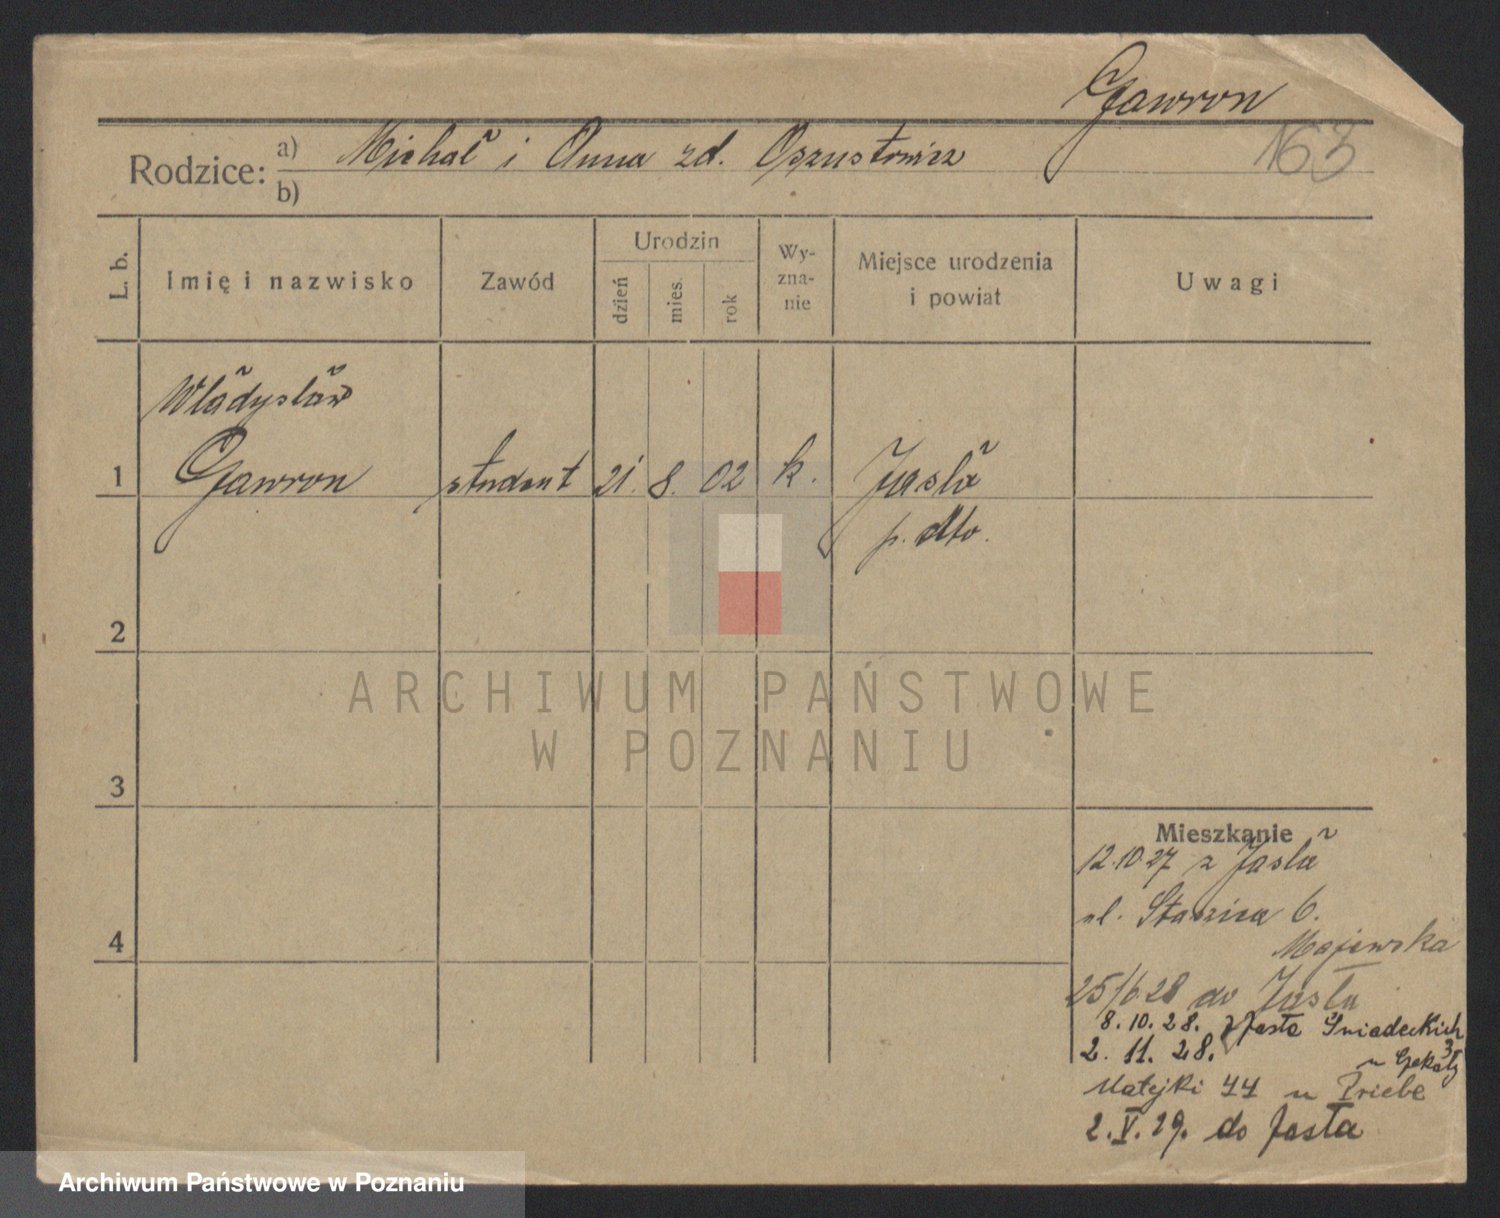 Gawron
163
Rodzice: a) Michał i Anna zd. Oszustowicz
b)
L. b. Imię i nazwisko Zawód Urodzin dzień mies. rok Wy-zna-nie Miejsce urodzenia i powiat Uwagi
Władysław
1 Gawron student 21. 8. 02 k. Jasła
p. dto.
2
ARCHIWUM PAŃSTWOWE
W POZNANIU
3
Mieszkanie
12.10.27 z Jasła
ul. Staszica 6.
Majewska
4
25/6 28 do Jasła
8. 10. 28. z Jasła Śniadeckich
2. 11. 28. u
Matejki 44 u Priebe
2. V. 29. do Jasła
Archiwum Państwowe w Poznaniu